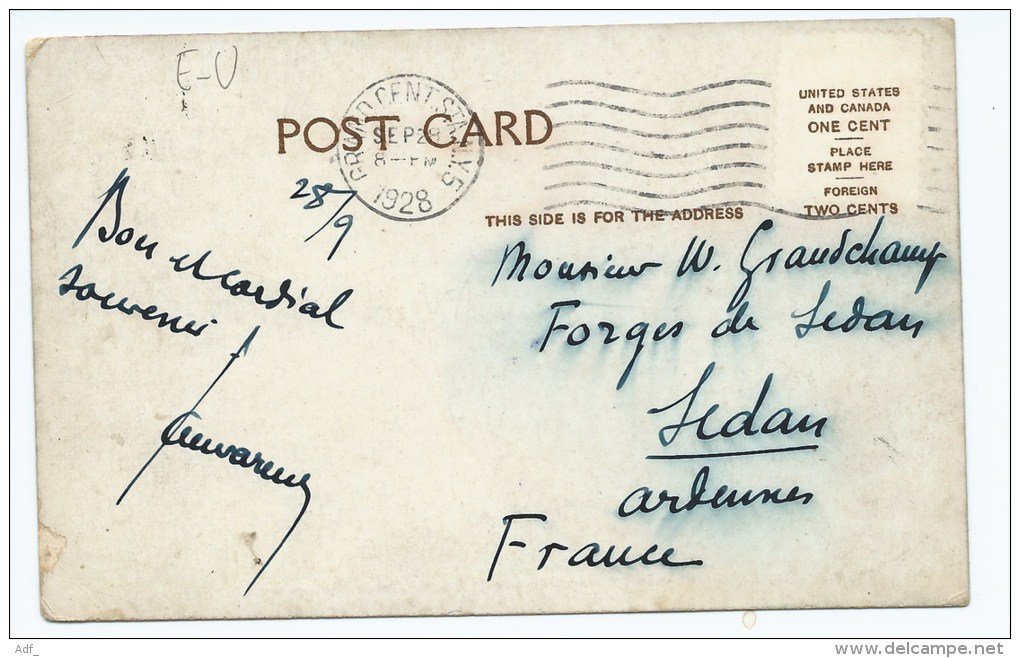 E-U
GRAND CENT. STA. N.Y.
SEP 28
8-PM
1928
POST CARD
UNITED STATES
AND CANADA
ONE CENT
PLACE
STAMP HERE
FOREIGN
TWO CENTS
THIS SIDE IS FOR THE ADDRESS
28/9
Bon et Cordial
souvenir
Monsieur W. Grandchamp
Forges de Sedan
Sedan
Ardennes
France
Adf_
www.delcampe.net